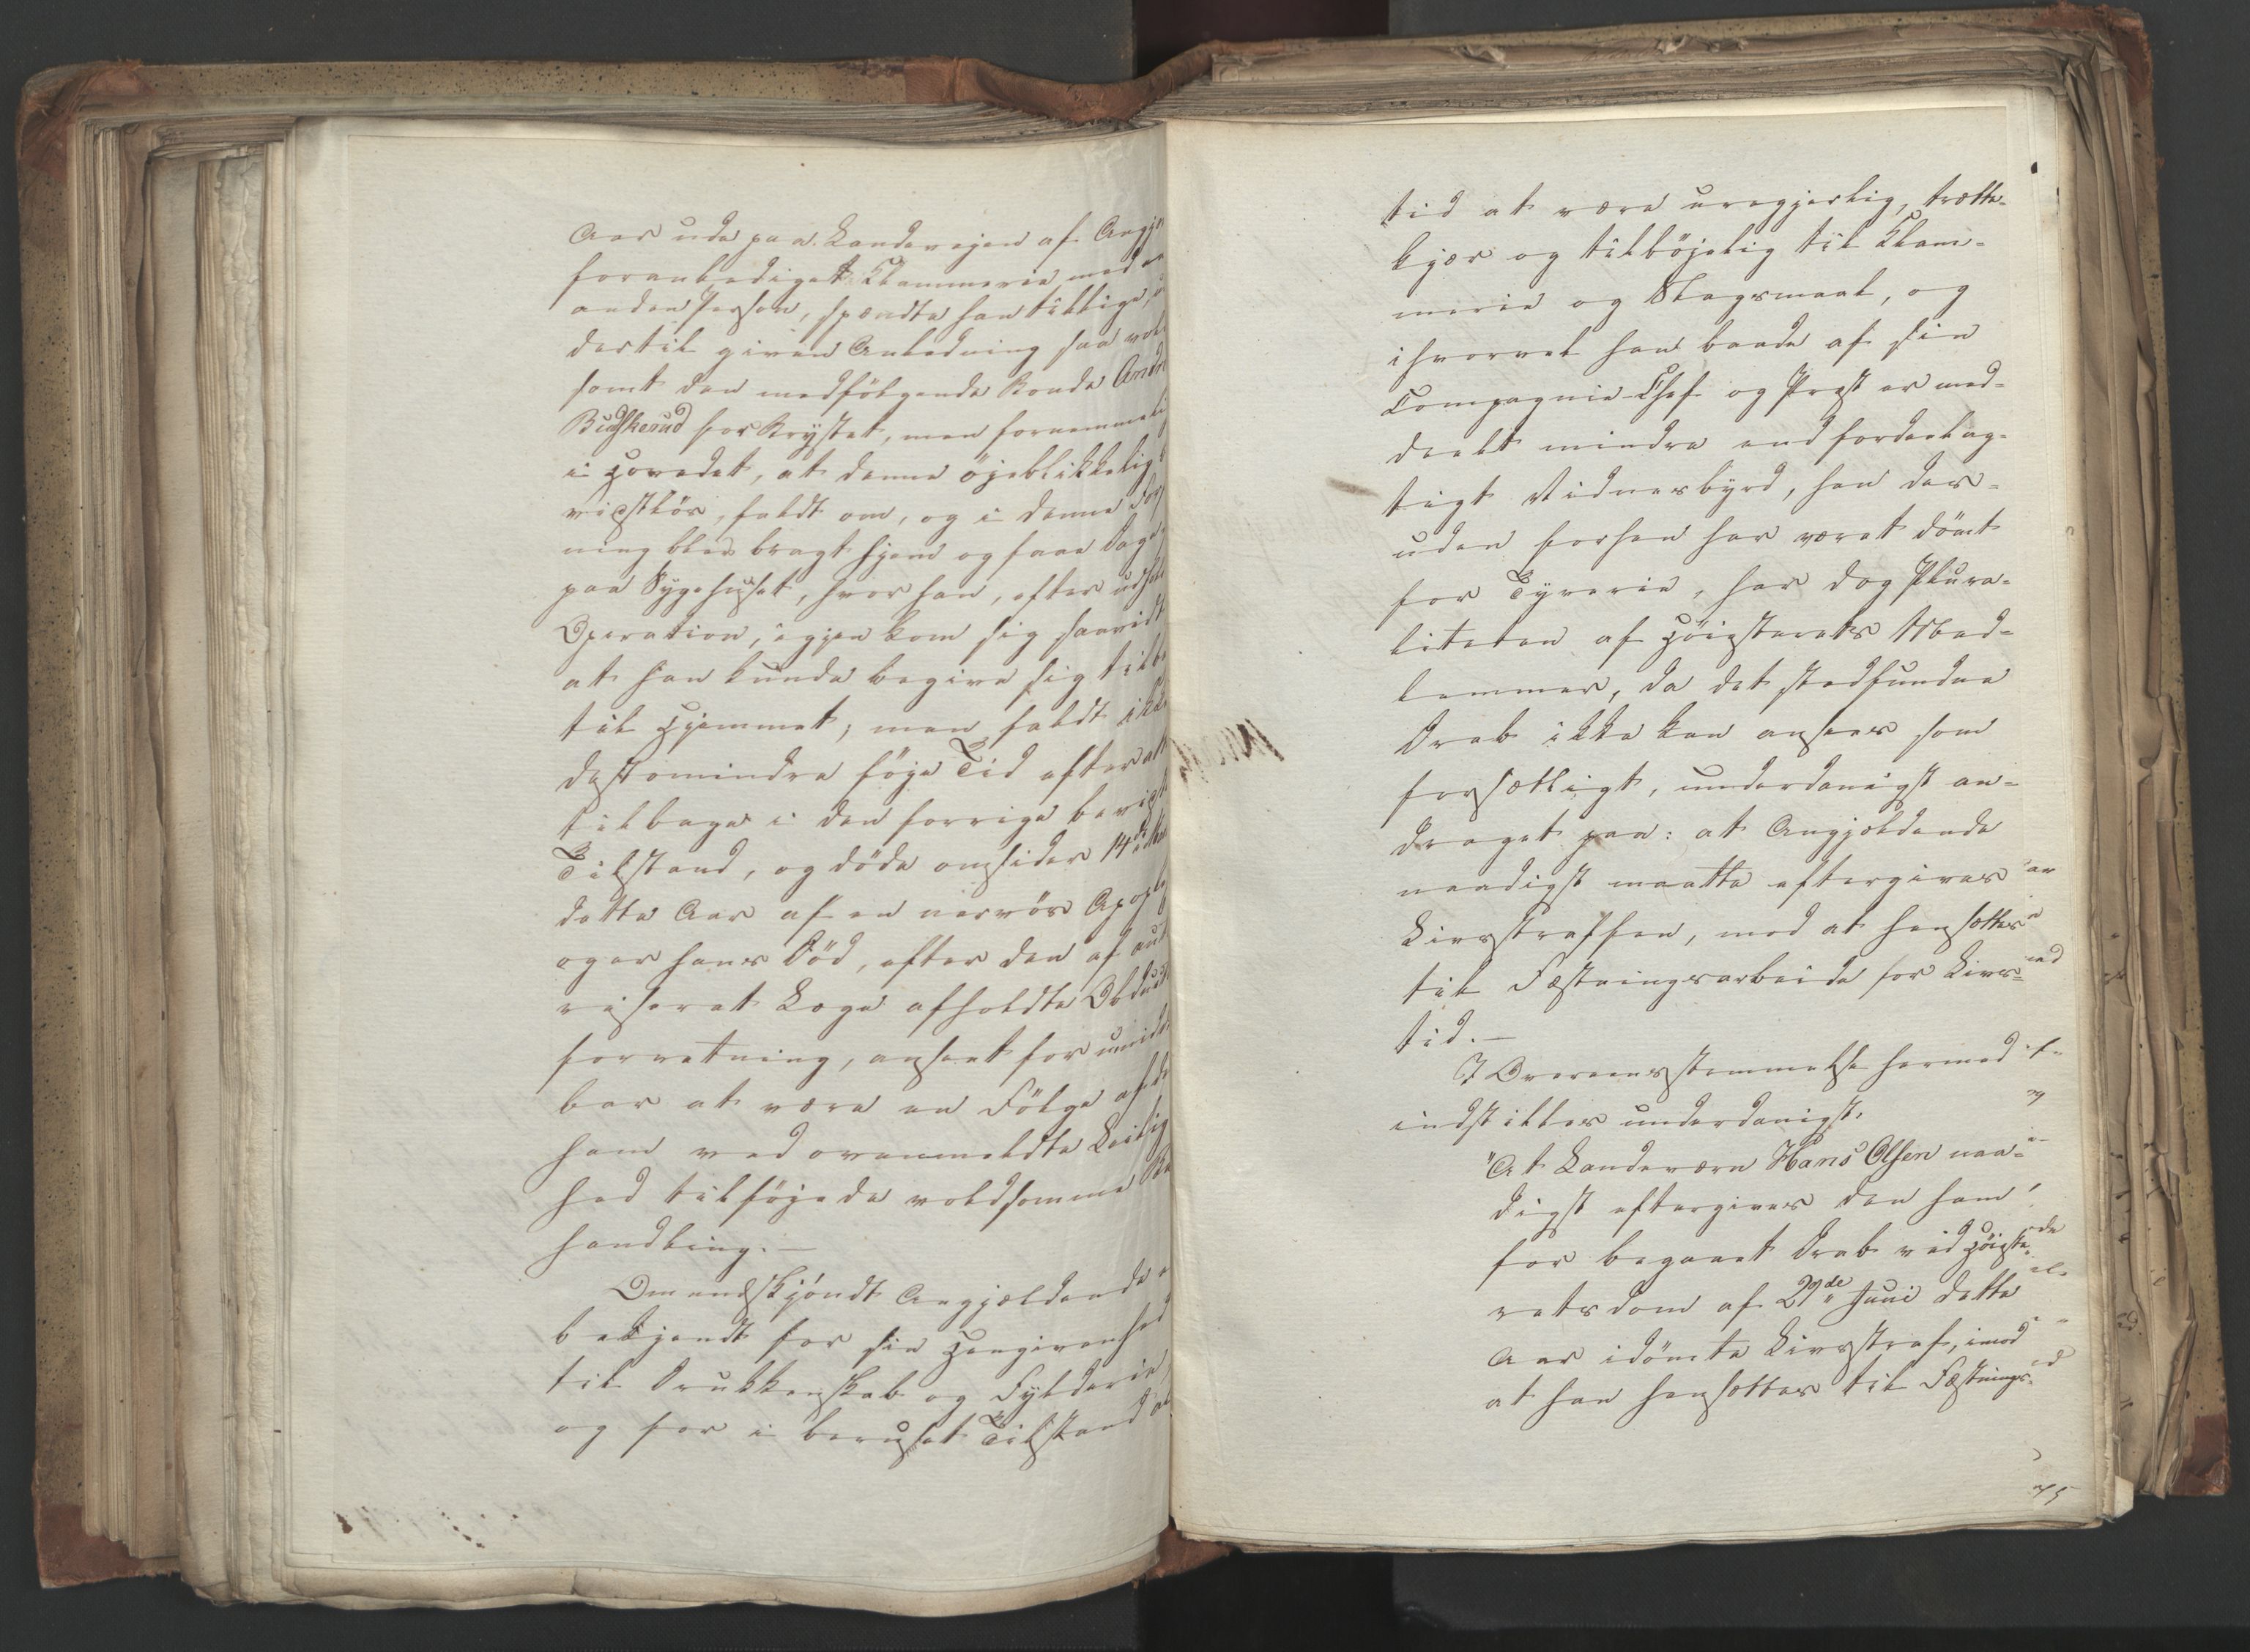 Aar ude paa Landeveien af Angjel
foranlediget Klammerie med en
anden Person, spændte han tillige, u
dertil given Anledning saa vel
somt den medfölgende Bonde Andr
Budskerud for Brystet, men fornemmeli
i Hovedet, at denne öjeblikkelig
restlös, faldt om, og i denne For
ning blev bragt hjem og faae Dage
paa Sygehuset, hvor han, efter udhol
Operation, igjen kom sig saavidt
at han kunde begive sig tilba
til Hjemmet; men faldt ikke
destomindre föje Tid efter at
tilbage i den forrige
Tilstand, og döde omsider 14de
dette Aar af en nervös Apople
og er hans Död, efter den af aut
riseret Læge afholdte Obduct
forretning, anseet for umid
bar at være en Fölge af de
ham ved ovenmeldte Leilig
hed tilföjede voldsomme Be
handling. —
Om endskjöndt Angjældende e
bekjendt for sin Hengivenhed
til Drukkenskab og Fylderie,
og for i beruset Tilstand al
tid at være uregjerlig, trætte-
kjær og tilböjelig til Klam-
merie og Slagsmaal, og
ihvorvel han baade af sin
Compagnie-Chef og Præst er med-
deelt mindre end fordeelag-
tigt Vidnesbyrd, han des-
uden forhen har været dömt
for Tyverie, har dog Plura-
liteten af Höiesterets Med-
lemmer, da det stedfundne
Drab ikke kan ansees som
forsætligt, underdanigst an-
draget paa: at Angjældende
naadigst maatte eftergives
Livsstraffen, mod at hensættes
til Fæstningsarbeide for Livs-
tid. —
I Overeensstemmelse hermed
indstilles underdanigst:
"At Landeværn Hans Olsen naa-
digst eftergives den ham
for begaaet Drab ved Höieste-
rets dom af 29de Juni dette
Aar idömte Livsstraf, imod
at han hensættes til Fæstnings-